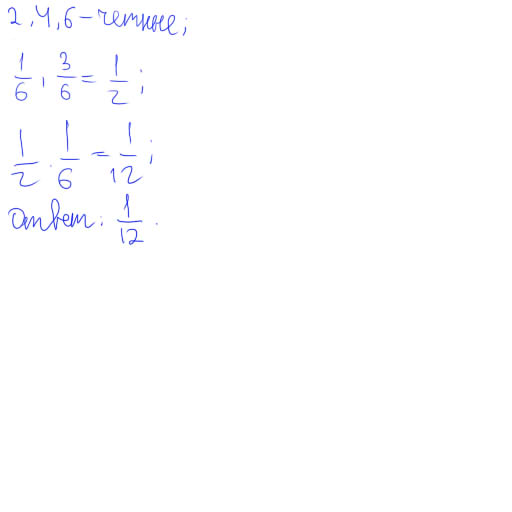 2, 4, 6 - четные;
1/6, 3/6 = 1/2;
1/2 · 1/6 = 1/12;
Ответ: 1/12.